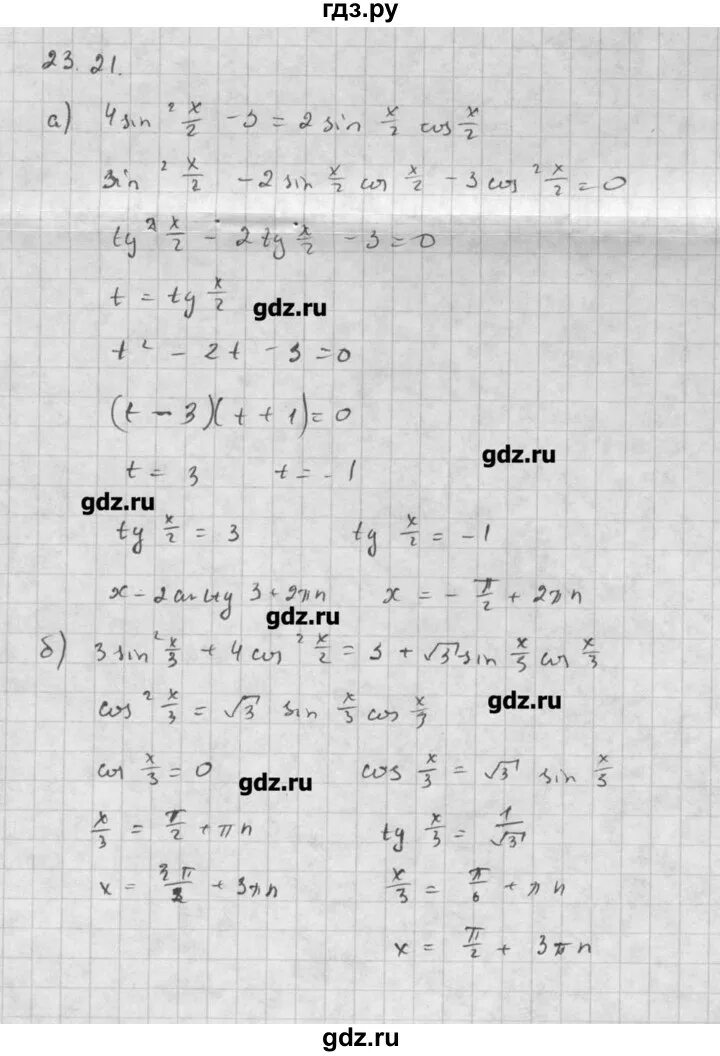 гдз.ру
23.21.
а) 4 sin² x/2 - 3 = 2 sin x/2 cos x/2
sin² x/2 - 2 sin x/2 cos x/2 - 3 cos² x/2 = 0
tg² x/2 - 2 tg x/2 - 3 = 0
t = tg x/2
gdz.ru
t² - 2t - 3 = 0
(t - 3)(t + 1) = 0
gdz.ru
t = 3 t = -1
gdz.ru
tg x/2 = 3 tg x/2 = -1
x = 2 arctg 3 + 2πn x = - π/2 + 2πn
gdz.ru
б) 3 sin² x/3 + 4 cos² x/2 = 3 + √3 sin x/3 cos x/3
gdz.ru
cos² x/3 = √3 sin x/3 cos x/3
cos x/3 = 0 cos x/3 = √3 sin x/3
gdz.ru
x/3 = π/2 + πn tg x/3 = 1/√3
x = 3π/2 + 3πn x/3 = π/6 + πn
x = π/2 + 3πn
gdz.ru